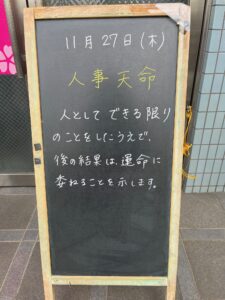 11月27日(木)
人事天命
人として できる限り
のことをしたうえで、
後の結果は、運命に
委ねることを示します。